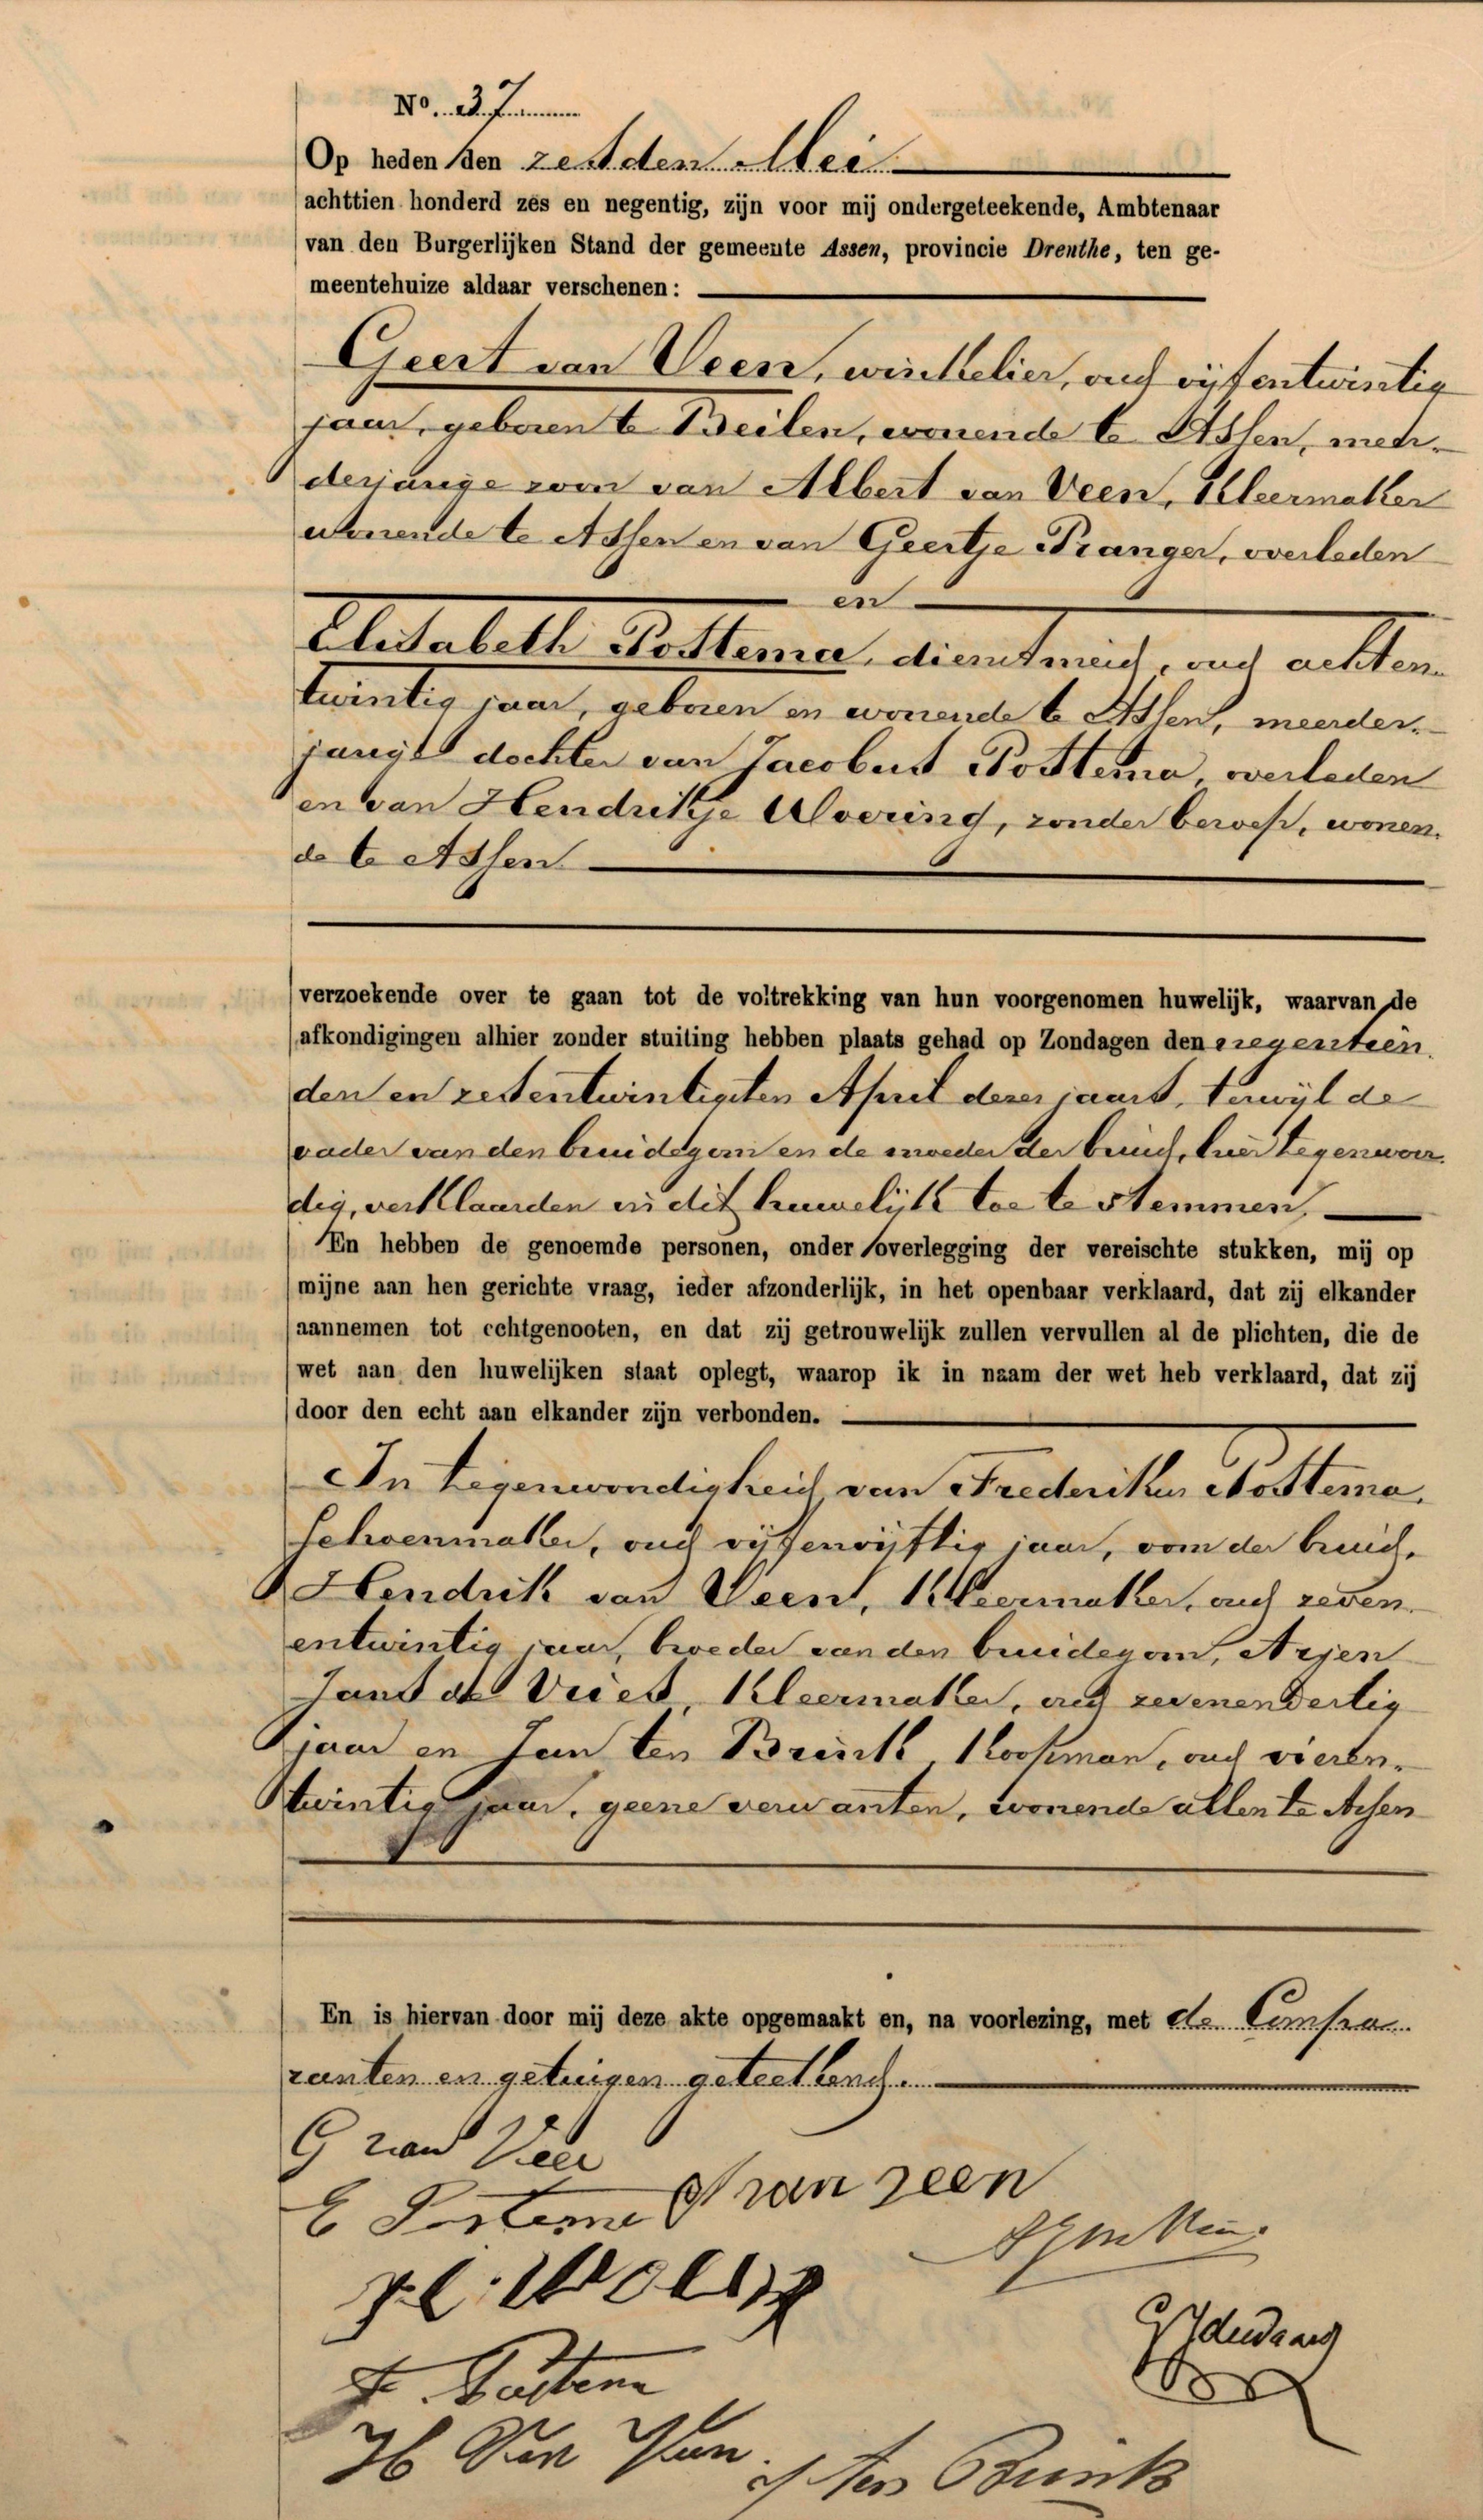 No. 37
Op heden den zesden Mei
achttien honderd zes en negentig, zijn voor mij ondergeteekende, Ambtenaar
van den Burgerlijken Stand der gemeente Assen, provincie Drenthe, ten ge-
meentehuize aldaar verschenen:
Geert van Veen, winkelier, oud vijfentwintig
jaar, geboren te Beilen, wonende te Assen, meer-
derjarige zoon van Albert van Veen, Kleermaker
wonende te Assen en van Geertje Pranger, overleden
en
Elisabeth Postema, dienstmeid, oud achten-
twintig jaar, geboren en wonende te Assen, meerder-
jarige dochter van Jacobus Postema, overleden
en van Hendrikje Woering, zonder beroep, wonen-
de te Assen
verzoekende over te gaan tot de voltrekking van hun voorgenomen huwelijk, waarvan de
afkondigingen alhier zonder stuiting hebben plaats gehad op Zondagen den negentien
den en zesentwintigsten April dezes jaars, terwijl de
vader van den bruidegom en de moeder der bruid, hier tegenwoor-
dig, verklaarden in dit huwelijk toe te stemmen,
En hebben de genoemde personen, onder overlegging der vereischte stukken, mij op
mijne aan hen gerichte vraag, ieder afzonderlijk, in het openbaar verklaard, dat zij elkander
aannemen tot echtgenooten, en dat zij getrouwelijk zullen vervullen al de plichten, die de
wet aan den huwelijken staat oplegt, waarop ik in naam der wet heb verklaard, dat zij
door den echt aan elkander zijn verbonden.
In tegenwoordigheid van Frederikus Postema,
Schoenmaker, oud vijfenvijftig jaar, oom der bruid,
Hendrik van Veen, Kleermaker, oud zeven-
entwintig jaar, broeder van den bruidegom, Arjen
Jans de Vries, Kleermaker, oud zevenendertig
jaar en Jan ten Brink, Koopman, oud vieren-
twintig jaar, geene verwanten, wonende allen te Assen
En is hiervan door mij deze akte opgemaakt en, na voorlezing, met de Compa-
ranten en getuigen geteekend.
G van Veen
E Postema A van veen
F Postema
H van Veen
J ten Brink